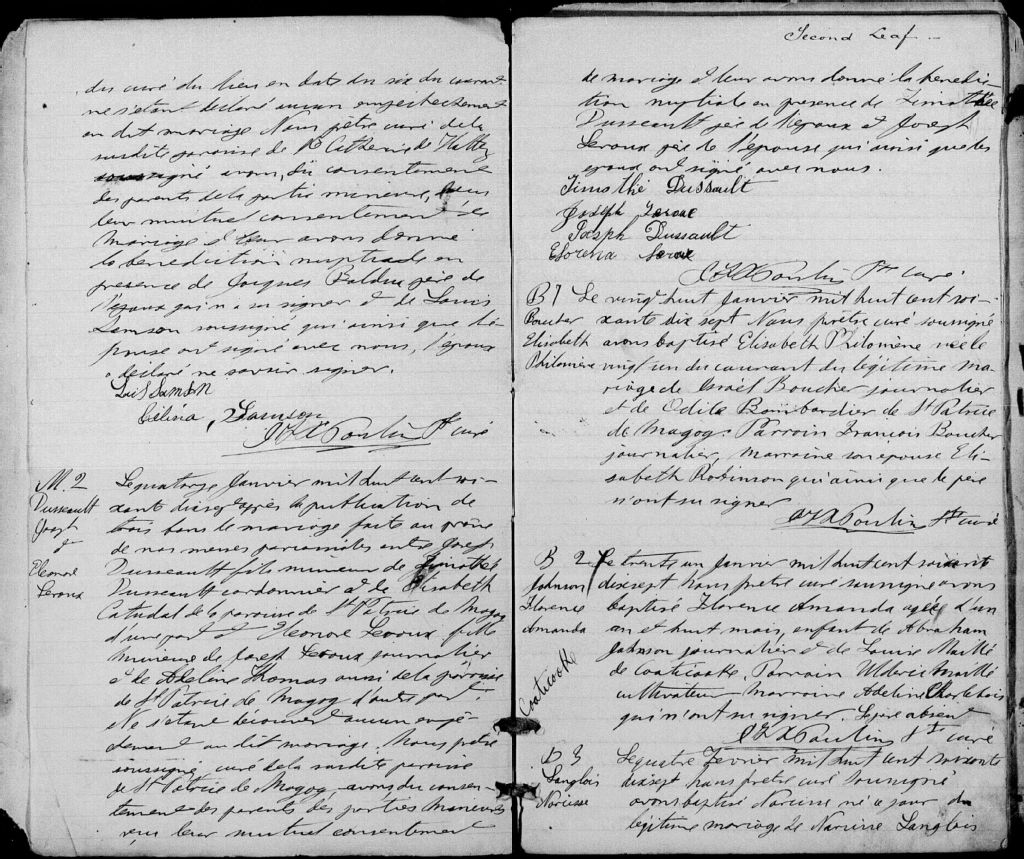 du curé du lieu en date du six du courant
ne s'étant déclaré aucun empêchement
au dit mariage Nous prêtre curé de la
susdite paroisse de Ste Catherine de Hatley
soussigné avons, du consentement
des parents de la partie mineure, reçu
leur mutuel consentement de
mariage et leur avons donné
la bénédiction nuptiale en
présence de Jacques Balduc père de
l'époux qui n'a su signer et de Louis
Lamson soussigné qui ainsi que l'é-
pouse ont signé avec nous, l'époux
a déclaré ne savoir signer.
Luis Samson
Célina Samson
Poulin Ptre curé
M. 2
Dusseault
Joseph
&
Eleonore
Leroux
Le quatorze Janvier mil huit cent soi-
xante dix sept après la publication de
trois bans de mariage faite au prône
de nos messes paroissiales entre Joseph
Dusseault fils mineur de Timothée
Dusseault cordonnier et de Elisabeth
Catudal de la paroisse de St Patrice de Magog
d'une part et Eleonore Leroux fille
mineure de Joseph Leroux journalier
et de Adeline Thomas aussi de la paroisse
de St Patrice de Magog d'autre part
et ne s'étant découvert aucun empê-
chement au dit mariage. Nous prêtre
soussigné, curé de la susdite paroisse
de St Patrice de Magog, avons du consen-
tement des parents des parties mineures
reçu leur mutuel consentement
Second Leaf -
de mariage et leur avons donné la bénédic-
tion nuptiale en présence de Timothée
Dusseault père de l'époux et Joseph
Leroux père de l'épouse qui ainsi que les
époux ont signé avec nous.
Timothé Dussault
Joseph Leroux
Joseph Dussault
Eloréna Leroux
Poulin Ptre curé.
B 1
Boucher
Elisabeth
Philomène
Le vingt huit Janvier mil huit cent soi-
xante dix sept Nous prêtre curé soussigné
avons baptisé Elisabeth Philomène née le
vingt un du courant du légitime ma-
riage de Israël Boucher journalier
et de Odile Bombardier de St Patrice
de Magog. Parrain Francois Boucher
journalier, Marraine son épouse Eli-
sabeth Robinson qui ainsi que le père
n'ont su signer
Poulin Ptre curé
B 2
Johnson
Florence
Amanda
Coaticooke
Le trente un Janvier mil huit cent soixante
dix sept nous prêtre curé soussigné avons
baptisé Florence Amanda agée d'un
an et huit mois, enfant de Abraham
Johnson journalier et de Louise Maillé
de Coaticooke. Parrain Ulderic Maillé
cultivateur Marraine Adeline Charlebois
qui n'ont su signer. Le père absent
Poulin Ptre curé
B 3
Langlois
Narcisse
Le quatre Fevrier mil huit cent soixante
dix sept nous prêtre curé soussigné
avons baptisé Narcisse né ce jour du
légitime mariage de Narcisse Langlois